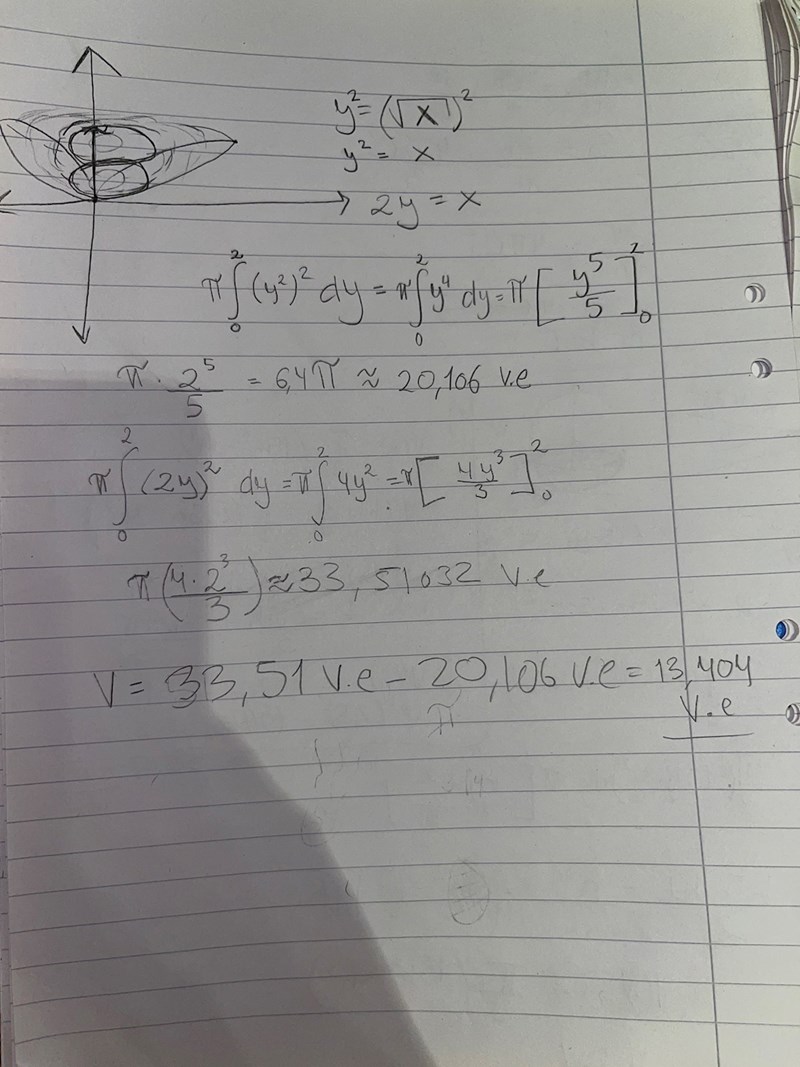 y² = (√x)²
y² = x
2y = x
π∫₀² (y²)² dy = π∫₀² y⁴ dy = π[y⁵/5]₀²
π · 2⁵/5 = 6,4π ≈ 20,106 v.e
π∫₀² (2y)² dy = π∫₀² 4y² = π[4y³/3]₀²
π(4·2³/3) ≈ 33,51032 v.e
V = 33,51 v.e – 20,106 v.e = 13,404
v.e